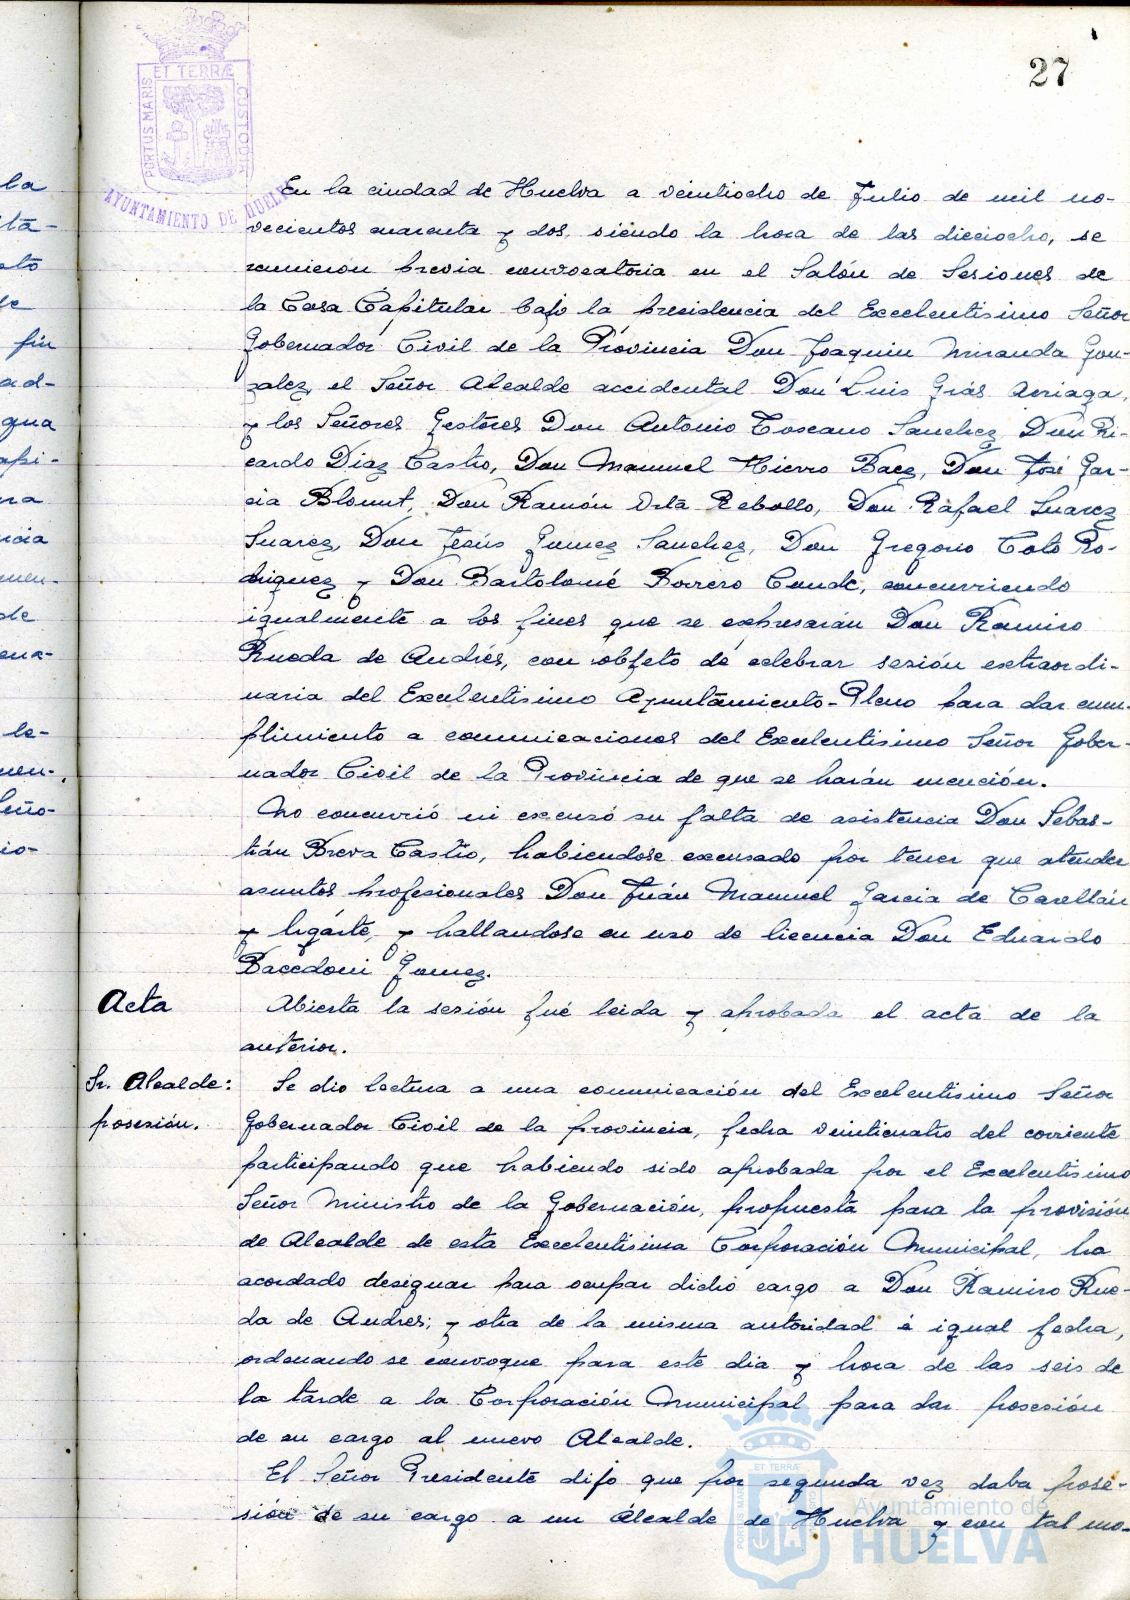 27
PORTUS MARIS ET TERRÆ CUSTODIA
AYUNTAMIENTO DE HUELVA
En la ciudad de Huelva a veintiocho de Julio de mil no-
vecientos cuarenta y dos, siendo la hora de las dieciocho, se
reunieron previa convocatoria en el Salón de Sesiones de
la Casa Capitular bajo la presidencia del Excelentisimo Señor
Gobernador Civil de la Provincia Don Joaquin Miranda Gon-
zalez, el Señor Alcalde accidental Don Luis Grás Arriaga,
y los Señores Gestores Don Antonio Toscano Sanchez, Don Ri-
cardo Diaz Castro, Don Manuel Hierro Baez, Don José Gar-
cia Blount, Don Ramón Orta Rebollo, Don Rafael Suarez
Suarez, Don Jesús Gomez Sanchez, Don Gregorio Toto Ro-
driguez y Don Bartolomé Borrero Conde, concurriendo
igualmente a los fines que se expresarán Don Ramiro
Rueda de Andrés, con objeto de celebrar sesión extraordi-
naria del Excelentisimo Ayuntamiento-Pleno para dar cum-
plimiento a comunicaciones del Excelentisimo Señor Gober-
nador Civil de la Provincia de que se harán mención.
No concurrió ni excusó su falta de asistencia Don Sebas-
tián Breva Castro, habiendose excusado por tener que atender
asuntos profesionales Don Juán Manuel Garcia de
y Ugárte, y hallandose en uso de licencia Don Eduardo
Gomez.
Acta
Abierta la sesión fué leida y aprobada el acta de la
anterior.
Sr. Alcalde:
posesión.
Se dio lectura a una comunicación del Excelentisimo Señor
Gobernador Civil de la provincia, fecha veinticuatro del corriente
participando que habiendo sido aprobada por el Excelentisimo
Señor Ministro de la Gobernación, propuesta para la provisión
de Alcalde de esta Excelentisima Corporación Municipal, ha
acordado designar para ocupar dicho cargo a Don Ramiro Rue-
da de Andres; y otra de la misma autoridad é igual fecha,
ordenando se convoque para este dia y hora de las seis de
la tarde a la Corporación Municipal para dar posesión
de su cargo al nuevo Alcalde.
El Señor Presidente dijo que por segunda vez daba pose-
sión de su cargo a un Alcalde de Huelva y con tal mo-
Ayuntamiento de
HUELVA